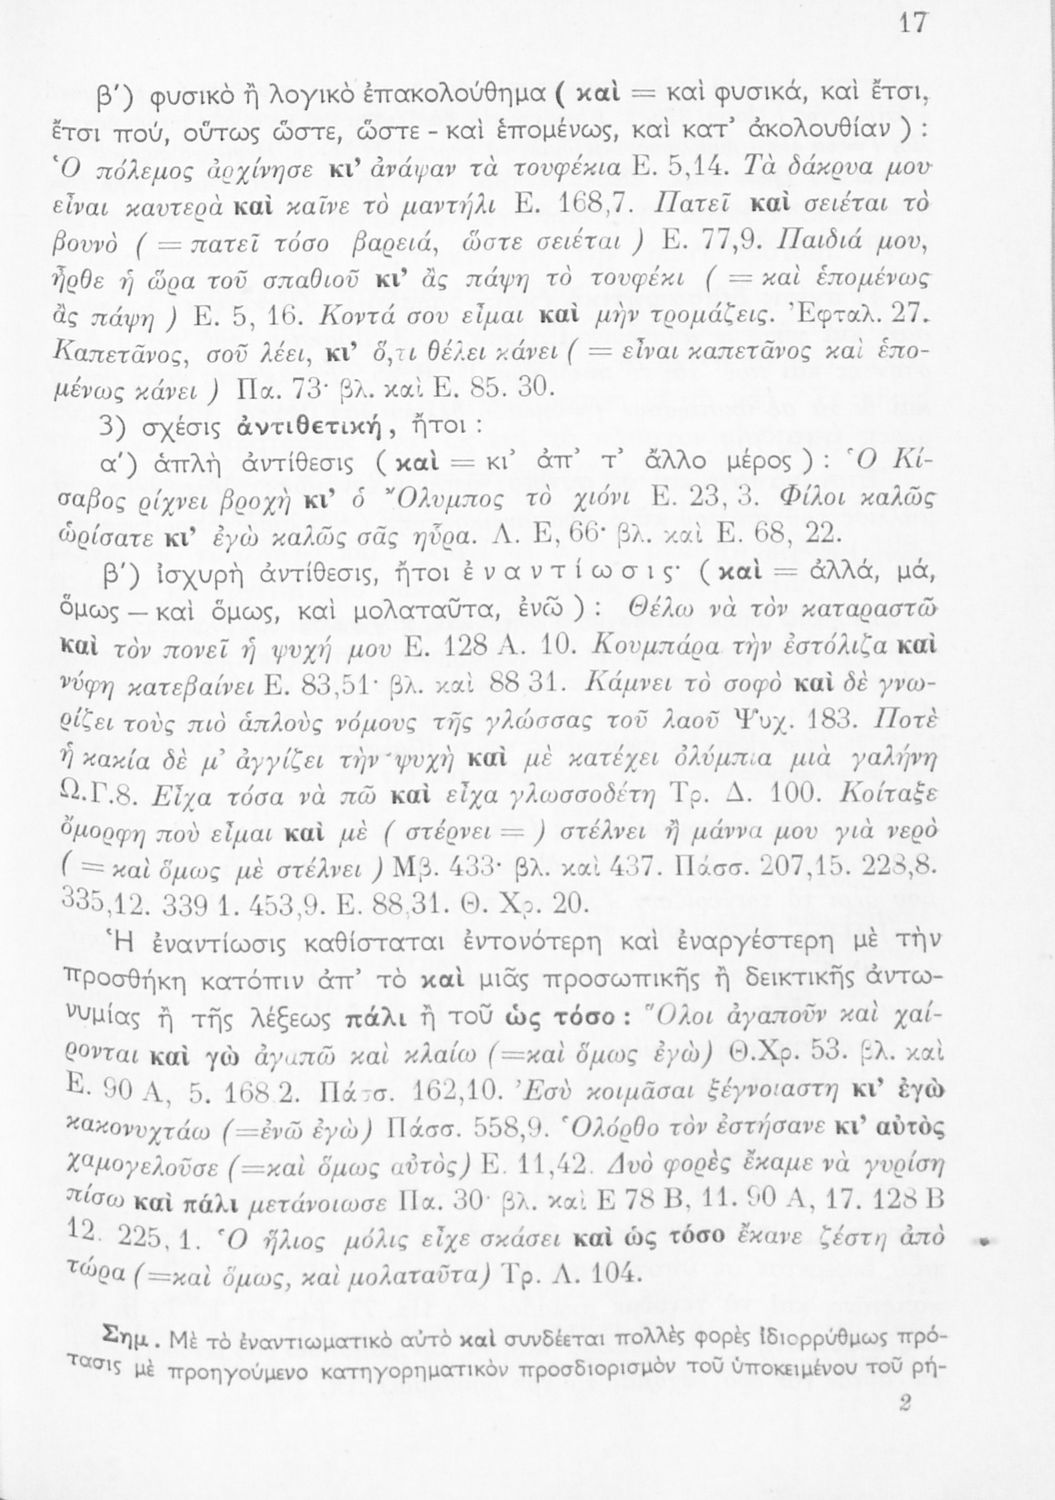 17
β′) φυσικὸ ἢ λογικὸ ἐπακολούθημα ( καὶ = καὶ φυσικά, καὶ ἔτσι,
ἔτσι πού, οὕτως ὥστε, ὥστε - καὶ ἑπομένως, καὶ κατ’ ἀκολουθίαν ) :
Ὁ πόλεμος ἀρχίνησε κι’ ἀνάψαν τὰ τουφέκια Ε. 5,14. Τὰ δάκρυα μου
εἶναι καυτερὰ καὶ καῖνε τὸ μαντήλι Ε. 168,7. Πατεῖ καὶ σειέται τὸ
βουνὸ ( = πατεῖ τόσο βαρειά, ὥστε σειέται ) Ε. 77,9. Παιδιά μου,
ἦρθε ἡ ὥρα τοῦ σπαθιοῦ κι’ ἂς πάψη τὸ τουφέκι ( = καὶ ἑπομένως
ἂς πάψη ) Ε. 5, 16. Κοντά σου εἶμαι καὶ μὴν τρομάζεις. Ἐφταλ. 27.
Καπετᾶνος, σοῦ λέει, κι’ ὅ,τι θέλει κάνει ( = εἶναι καπετᾶνος καὶ ἑπο-
μένως κάνει ) Πα. 73· βλ. καὶ Ε. 85. 30.
3) σχέσις ἀντιθετική, ἤτοι :
α′) ἁπλὴ ἀντίθεσις ( καὶ = κι’ ἀπ’ τ’ ἄλλο μέρος ) : Ὁ Κί-
σαβος ρίχνει βροχὴ κι’ ὁ Ὄλυμπος τὸ χιόνι Ε. 23, 3. Φίλοι καλῶς
ὡρίσατε κι’ ἐγὼ καλῶς σᾶς ηὗρα. Λ. Ε, 66· βλ. καὶ Ε. 68, 22.
β′) ἰσχυρὴ ἀντίθεσις, ἤτοι ἐναντίωσις· ( καὶ = ἀλλά, μά,
ὅμως — καὶ ὅμως, καὶ μολαταῦτα, ἐνῶ ) : Θέλω νὰ τὸν καταραστῶ
καὶ τὸν πονεῖ ἡ ψυχή μου Ε. 128 Α. 10. Κουμπάρα τὴν ἐστόλιζα καὶ
νύφη κατεβαίνει Ε. 83,51· βλ. καὶ 88 31. Κάμνει τὸ σοφὸ καὶ δὲ γνω-
ρίζει τοὺς πιὸ ἁπλοὺς νόμους τῆς γλώσσας τοῦ λαοῦ Ψυχ. 183. Ποτὲ
ἡ κακία δὲ μ’ ἀγγίζει τὴν ψυχὴ καὶ μὲ κατέχει ὀλύμπια μιὰ γαλήνη
Ω.Γ.8. Εἶχα τόσα νὰ πῶ καὶ εἶχα γλωσσοδέτη Τρ. Δ. 100. Κοίταξε
ὄμορφη ποὺ εἶμαι καὶ μὲ ( στέρνει = ) στέλνει ἡ μάννα μου γιὰ νερὸ
( = καὶ ὅμως μὲ στέλνει ) Μβ. 433· βλ. καὶ 437. Πάσσ. 207,15. 228,8.
335,12. 339 1. 453,9. Ε. 88,31. Θ. Χρ. 20.
Ἡ ἐναντίωσις καθίσταται ἐντονότερη καὶ ἐναργέστερη μὲ τὴν
προσθήκη κατόπιν ἀπ’ τὸ καὶ μιᾶς προσωπικῆς ἢ δεικτικῆς ἀντω-
νυμίας ἢ τῆς λέξεως πάλι ἢ τοῦ ὡς τόσο : Ὅλοι ἀγαποῦν καὶ χαί-
ρονται καὶ γὼ ἀγαπῶ καὶ κλαίω (=καὶ ὅμως ἐγὼ) Θ.Χρ. 53. βλ. καὶ
Ε. 90 Α, 5. 168 2. Πάσσ. 162,10. Ἐσὺ κοιμᾶσαι ξέγνοιαστη κι’ ἐγὼ
κακονυχτάω (=ἐνῶ ἐγὼ) Πάσσ. 558,9. Ὁλόρθο τὸν ἐστήσανε κι’ αὐτὸς
χαμογελοῦσε (=καὶ ὅμως αὐτὸς) Ε. 11,42. Δυὸ φορὲς ἔκαμε νὰ γυρίση
πίσω καὶ πάλι μετάνοιωσε Πα. 30· βλ. καὶ Ε 78 Β, 11. 90 Α, 17. 128 Β
12. 225, 1. Ὁ ἥλιος μόλις εἶχε σκάσει καὶ ὡς τόσο ἔκανε ζέστη ἀπὸ
τώρα (=καὶ ὅμως, καὶ μολαταῦτα) Τρ. Λ. 104.
Σημ. Μὲ τὸ ἐναντιωματικὸ αὐτὸ καὶ συνδέεται πολλὲς φορὲς ἰδιορρύθμως πρό-
τασις μὲ προηγούμενο κατηγορηματικὸν προσδιορισμὸν τοῦ ὑποκειμένου τοῦ ρή-
2